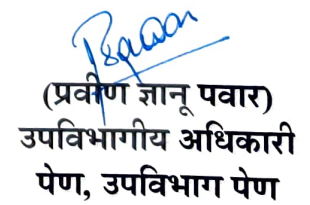 (प्रवीण ज्ञानू पवार)
उपविभागीय अधिकारी
पेण, उपविभाग पेण